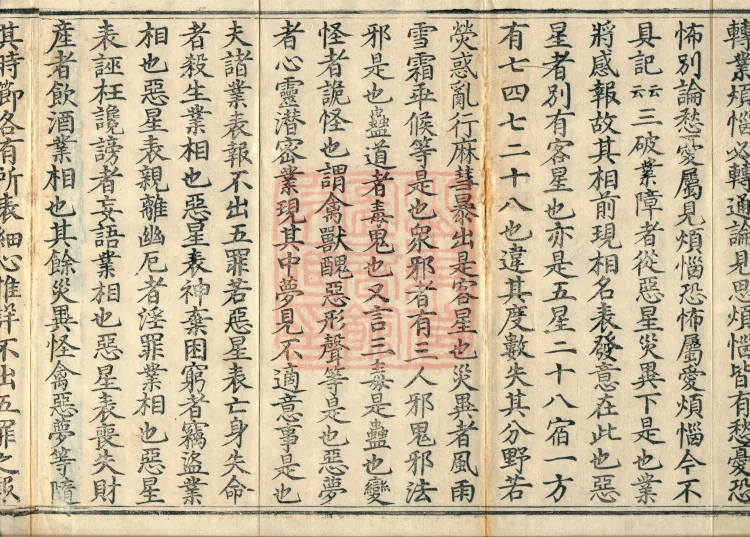 轉業煩惱必轉通論見思煩惱皆有愁憂恐
怖別論愁憂屬見煩惱恐怖屬愛煩惱今不
具記云云三破業障者從惡星災異下是也業
將感報故其相前現相名表發意在此也惡
星者別有客星也亦是五星二十八宿一方
有七四七二十八也違其度數失其分野若
熒惑亂行麻彗暴出是客星也災異者風雨
雪霜乖候等是也眾邪者有三人邪鬼邪法
邪是也蠱道者毒鬼也又言三毒是蠱也變
怪者詭怪也謂禽獸醜惡形聲等是也惡夢
者心靈潛密業現其中夢見不適意事是也
夫諸業表報不出五罪若惡星表亡身失命
者殺生業相也惡星表神棄困窮者竊盜業
相也惡星表親離幽厄者淫罪業相也惡星
表誣枉讒謗者妄語業相也惡星表喪失財
產者飲酒業相也其餘災異怪禽惡夢等隨
其時節各有所表細心惟詳不出五罪之報